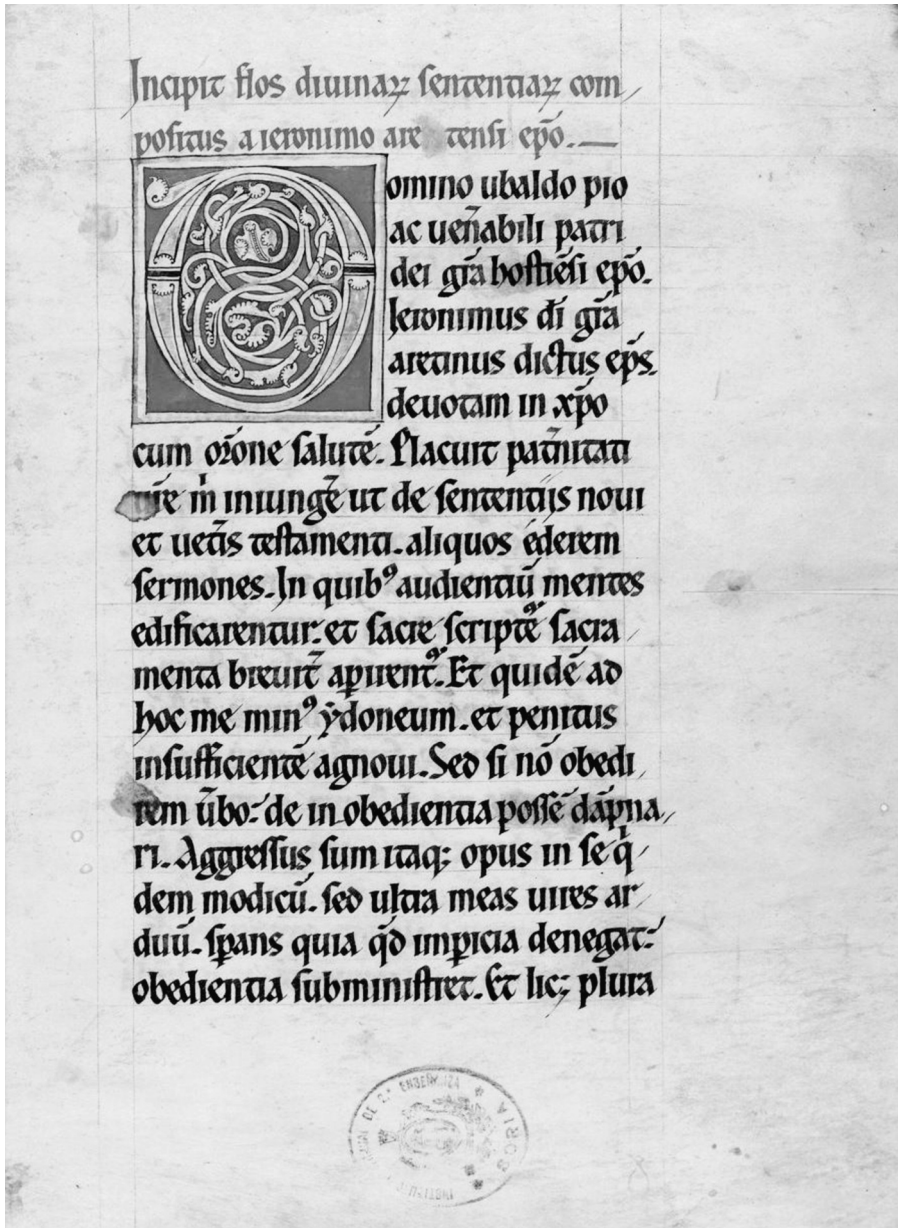 Incipit flos diuinaꝝ sententiaꝝ com
positus a ieronimo are tensi ep̄o.
Domino ubaldo pio
ac uen̄abili patri
dei gr̄a hostiēsi ep̄o.
Ieronimus dī gr̄a
aretinus dictus ep̄s.
deuotam in xp̄o
cum or̄one salutē. Placuit pat̄nitati
ur̄e m̍ iniungē ut de sententijs noui
et uet̄is testamenti. aliquos éderem
sermones. In quibꝰ audientiū mentes
edificarentur. et sacre scriptᷣe sacra
menta breuit̄ apꝑuentᷣ. Et quidē ad
hoc me minꝰ ẏdoneum. et penitus
insufficientē agnoui. Sed si nō obedi
rem ūbo: de in obedientia possē dāpna
ri. Aggressus sum itaqꝫ opus in se q̍
dem modicū. sed ultra meas uires ar
duū. sꝑans quia qd̄ imꝑicia denegat:
obedientia subministret. Et licꝫ plura
DE 2ᴬ ENSEÑANZA
SORIA